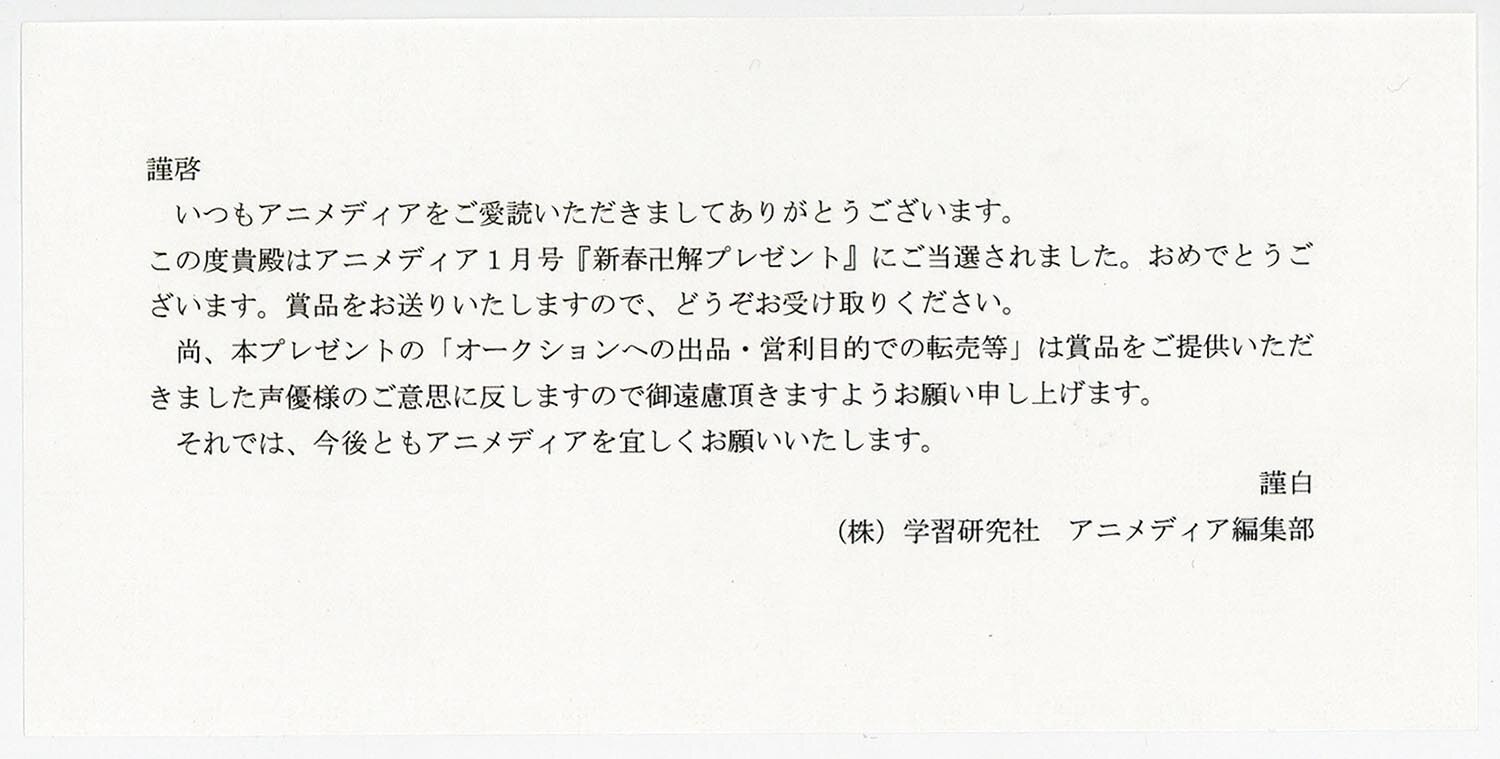 謹啓
　いつもアニメディアをご愛読いただきましてありがとうございます。
この度貴殿はアニメディア１月号『新春卍解プレゼント』にご当選されました。おめでとうご
ざいます。賞品をお送りいたしますので、どうぞお受け取りください。
　尚、本プレゼントの「オークションへの出品・営利目的での転売等」は賞品をご提供いただ
きました声優様のご意思に反しますので御遠慮頂きますようお願い申し上げます。
　それでは、今後ともアニメディアを宜しくお願いいたします。
謹白
（株）学習研究社　アニメディア編集部